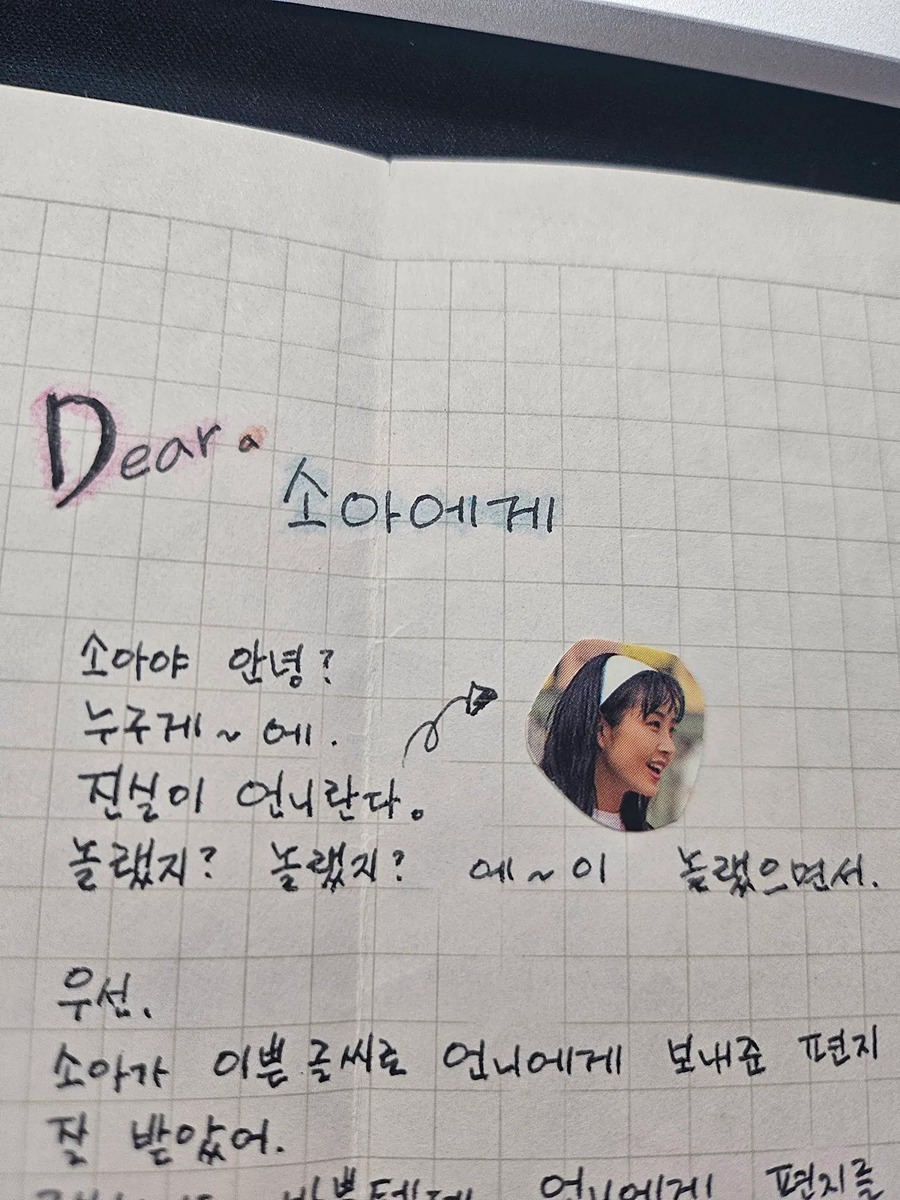 Dear.
소아에게
소아야 안녕?
누구게~ 에.
진실이 언니란다.
놀랬지? 놀랬지? 에~이 놀랬으면서.
우선.
소아가 이쁜 글씨로 언니에게 보내준 편지
잘 받았어.
언니에게 편지를